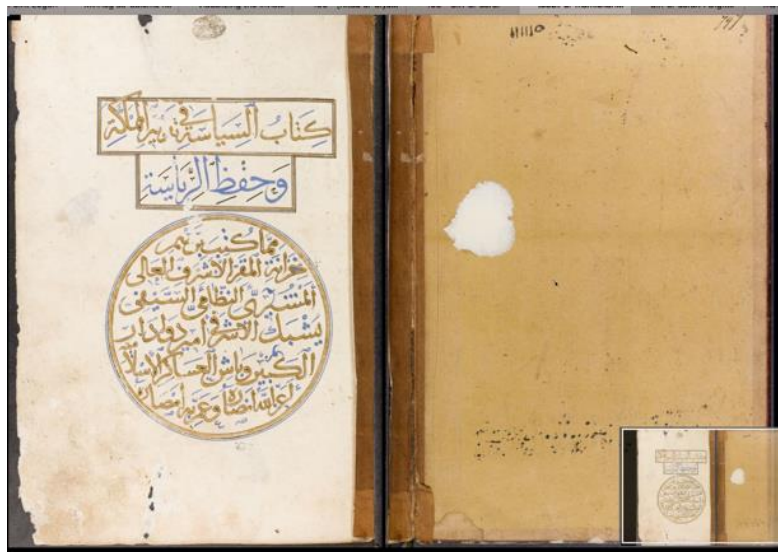 كتاب السياسة في تدبير المملكة
وحفظ الرياسة
مما كتب برسم
خزانة المقر الاشرف العالى
المشيرى النظامى السيفى
يشبك الاشرفى امير دوادار
الكبير وباش العساكر
اعز الله انصاره